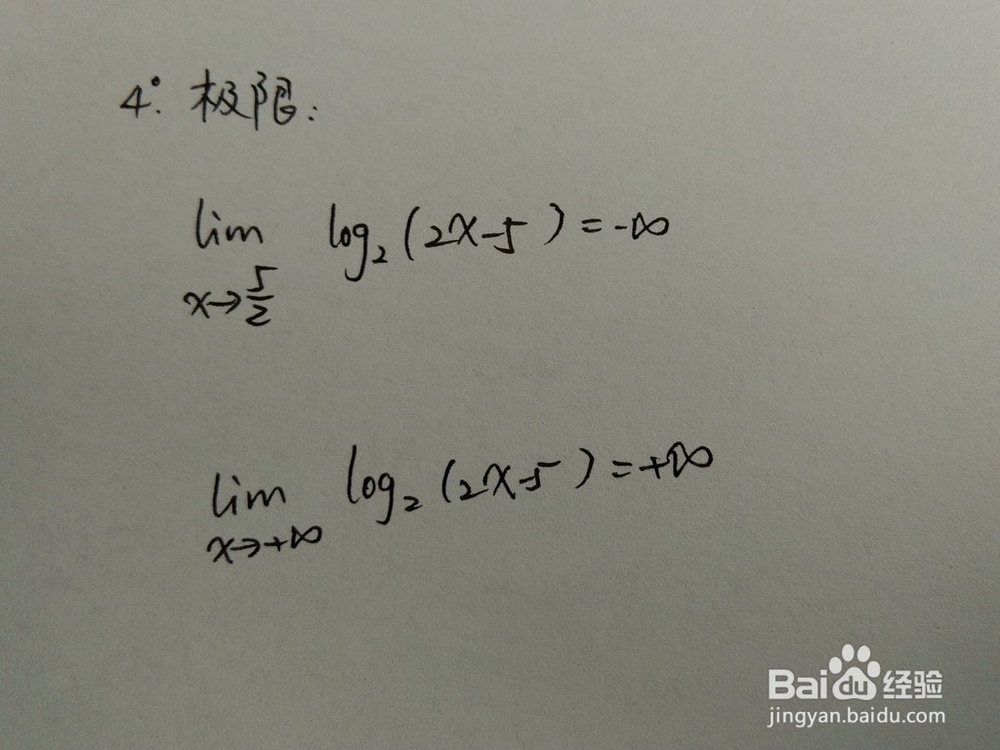 4°. 极限:
lim log₂(2x-5) = -∞
x→5/2
lim log₂(2x-5) = +∞
x→+∞
Baidu经验
jingyan.baidu.com